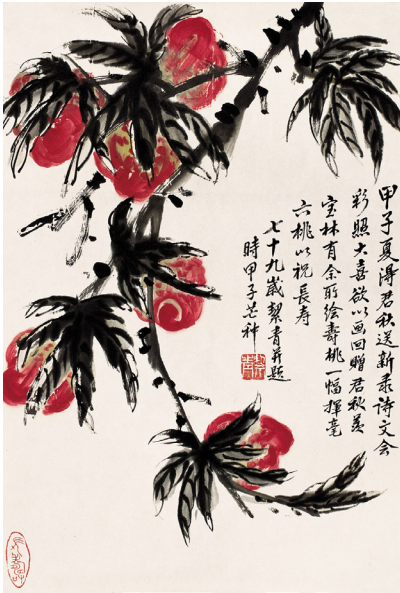 甲子夏得君秋送新录诗文会
彩照大喜欲以画回赠君秋羡
宝林有余所绘壽桃一幅挥毫
六桃以祝長寿
七十九歲絜青并题
時甲子芒种